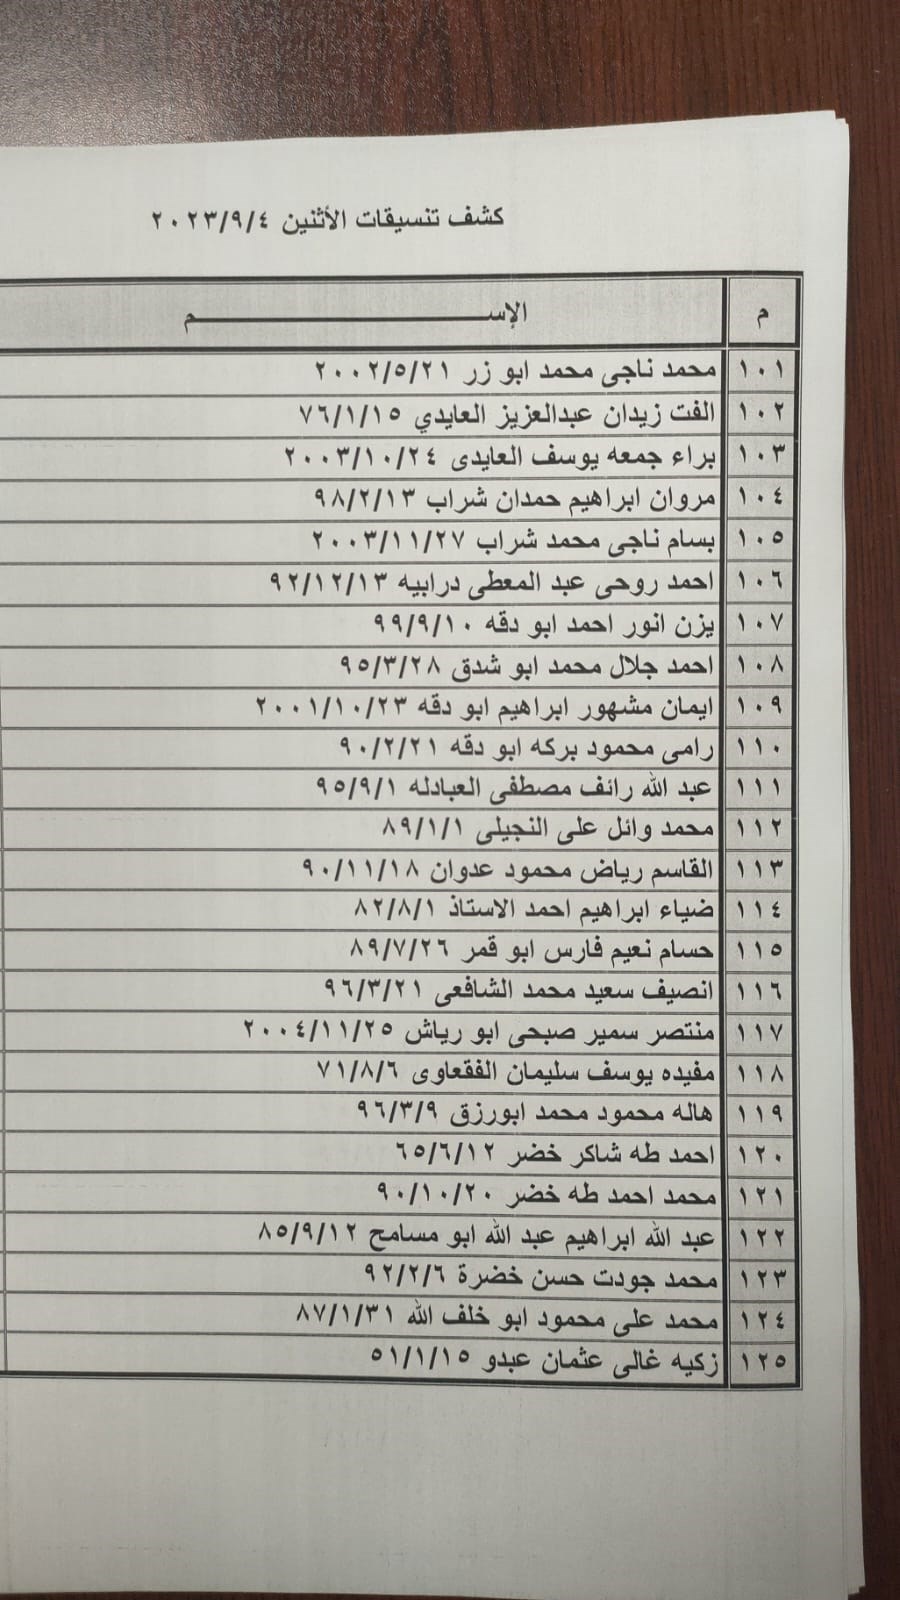 كشف تنسيقات الأثنين ٢٠٢٣/٩/٤
م الإســـــــــــــــــــــــــم
١٠١ محمد ناجى محمد ابو زر ٢٠٠٢/٥/٢١
١٠٢ الفت زيدان عبدالعزيز العايدي ٧٦/١/١٥
١٠٣ براء جمعه يوسف العايدى ٢٠٠٣/١٠/٢٤
١٠٤ مروان ابراهيم حمدان شراب ٩٨/٢/١٣
١٠٥ بسام ناجى محمد شراب ٢٠٠٣/١١/٢٧
١٠٦ احمد روحى عبد المعطى درابيه ٩٢/١٢/١٣
١٠٧ يزن انور احمد ابو دقه ٩٩/٩/١٠
١٠٨ احمد جلال محمد ابو شدق ٩٥/٣/٢٨
١٠٩ ايمان مشهور ابراهيم ابو دقه ٢٠٠١/١٠/٢٣
١١٠ رامى محمود بركه ابو دقه ٩٠/٢/٢١
١١١ عبد الله رائف مصطفى العبادله ٩٥/٩/١
١١٢ محمد وائل على النجيلى ٨٩/١/١
١١٣ القاسم رياض محمود عدوان ٩٠/١١/١٨
١١٤ ضياء ابراهيم احمد الاستاذ ٨٢/٨/١
١١٥ حسام نعيم فارس ابو قمر ٨٩/٧/٢٦
١١٦ انصيف سعيد محمد الشافعى ٩٦/٣/٢١
١١٧ منتصر سمير صبحى ابو رياش ٢٠٠٤/١١/٢٥
١١٨ مفيده يوسف سليمان الفقعاوى ٧١/٨/٦
١١٩ هاله محمود محمد ابورزق ٩٦/٣/٩
١٢٠ احمد طه شاكر خضر ٦٥/٦/١٢
١٢١ محمد احمد طه خضر ٩٠/١٠/٢٠
١٢٢ عبد الله ابراهيم عبد الله ابو مسامح ٨٥/٩/١٢
١٢٣ محمد جودت حسن خضرة ٩٢/٢/٦
١٢٤ محمد على محمود ابو خلف الله ٨٧/١/٣١
١٢٥ زكيه غالى عثمان عبدو ٥١/١/١٥